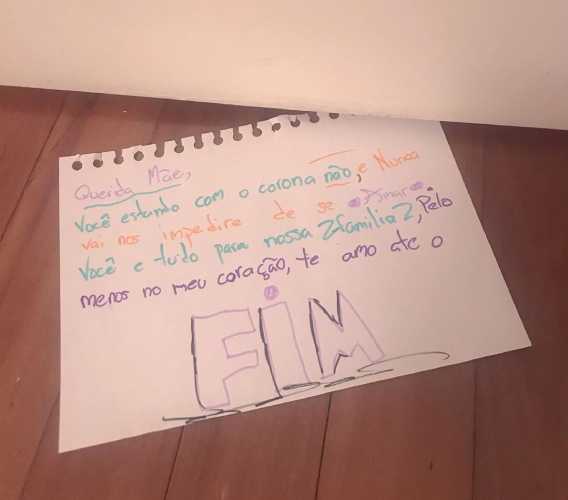 Querida Mãe,
Você estando com o corona não, e Nunca
vai nos impedire de se Amar
Você e tudo para nossa família, Pelo
menos no meu coração, te amo ate o
FIM